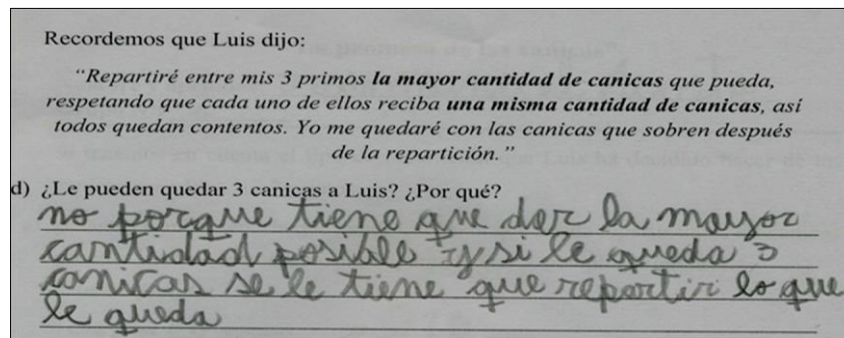 Recordemos que Luis dijo:
“Repartiré entre mis 3 primos la mayor cantidad de canicas que pueda,
respetando que cada uno de ellos reciba una misma cantidad de canicas, así
todos quedan contentos. Yo me quedaré con las canicas que sobren después
de la repartición.”
d) ¿Le pueden quedar 3 canicas a Luis? ¿Por qué?
no porque tiene que dar la mayor
cantidad posible y si le queda 3
canicas se le tiene que repartir lo que
le queda